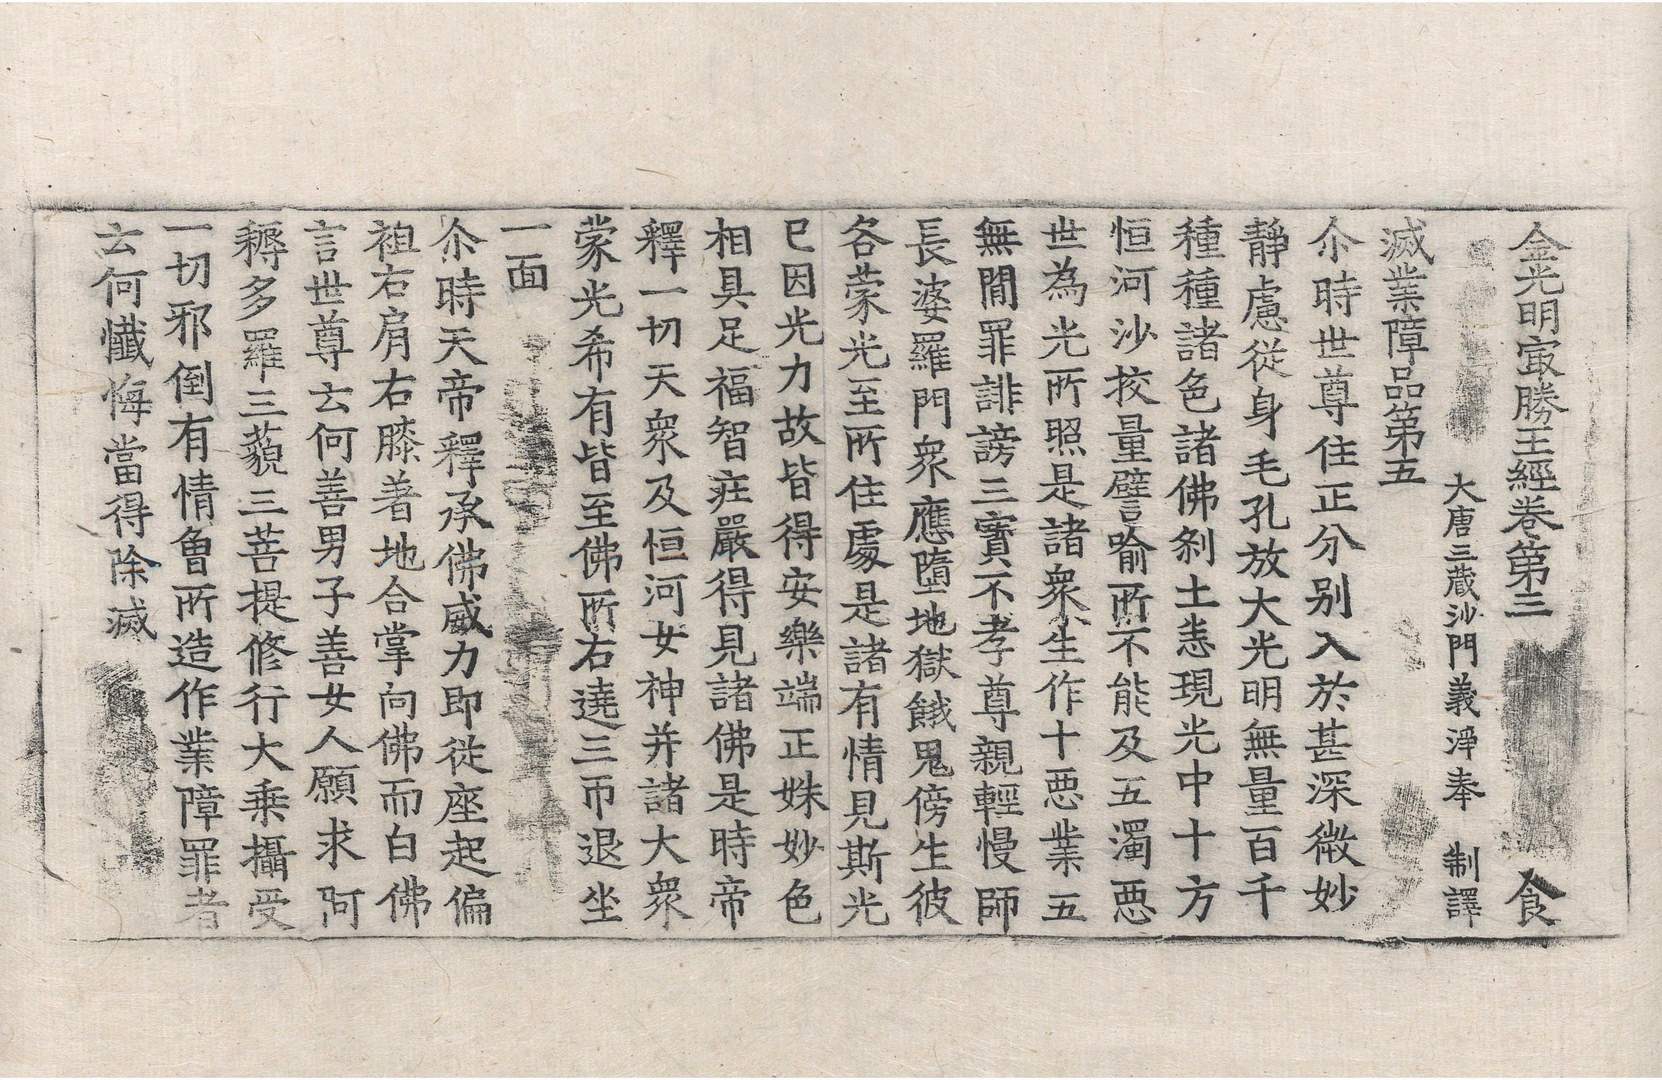 金光明㝡勝王經卷第三　食
大唐三藏沙門義淨奉　制譯
滅業障品第五
尒時世尊住正分别入於甚深微妙
靜慮從身毛孔放大光明無量百千
種種諸色諸佛刹土悉現光中十方
恒河沙挍量譬喻所不能及五濁悪
世為光所照是諸衆生作十悪業五
無間罪誹謗三寳不孝尊親輕慢師
長婆羅門衆應墮地獄餓鬼傍生彼
各蒙光至所住處是諸有情見斯光
已因光力故皆得安樂端正姝妙色
相具足福智莊嚴得見諸佛是時帝
釋一切天衆及恒河女神并諸大衆
蒙光希有皆至佛所右遶三帀退坐
一面
尒時天帝釋承佛威力即從座起偏
袒右肩右膝著地合掌向佛而白佛
言世尊云何善男子善女人願求阿
耨多羅三藐三菩提修行大乗攝受
一切邪倒有情曾所造作業障罪者
云何懺悔當得除滅